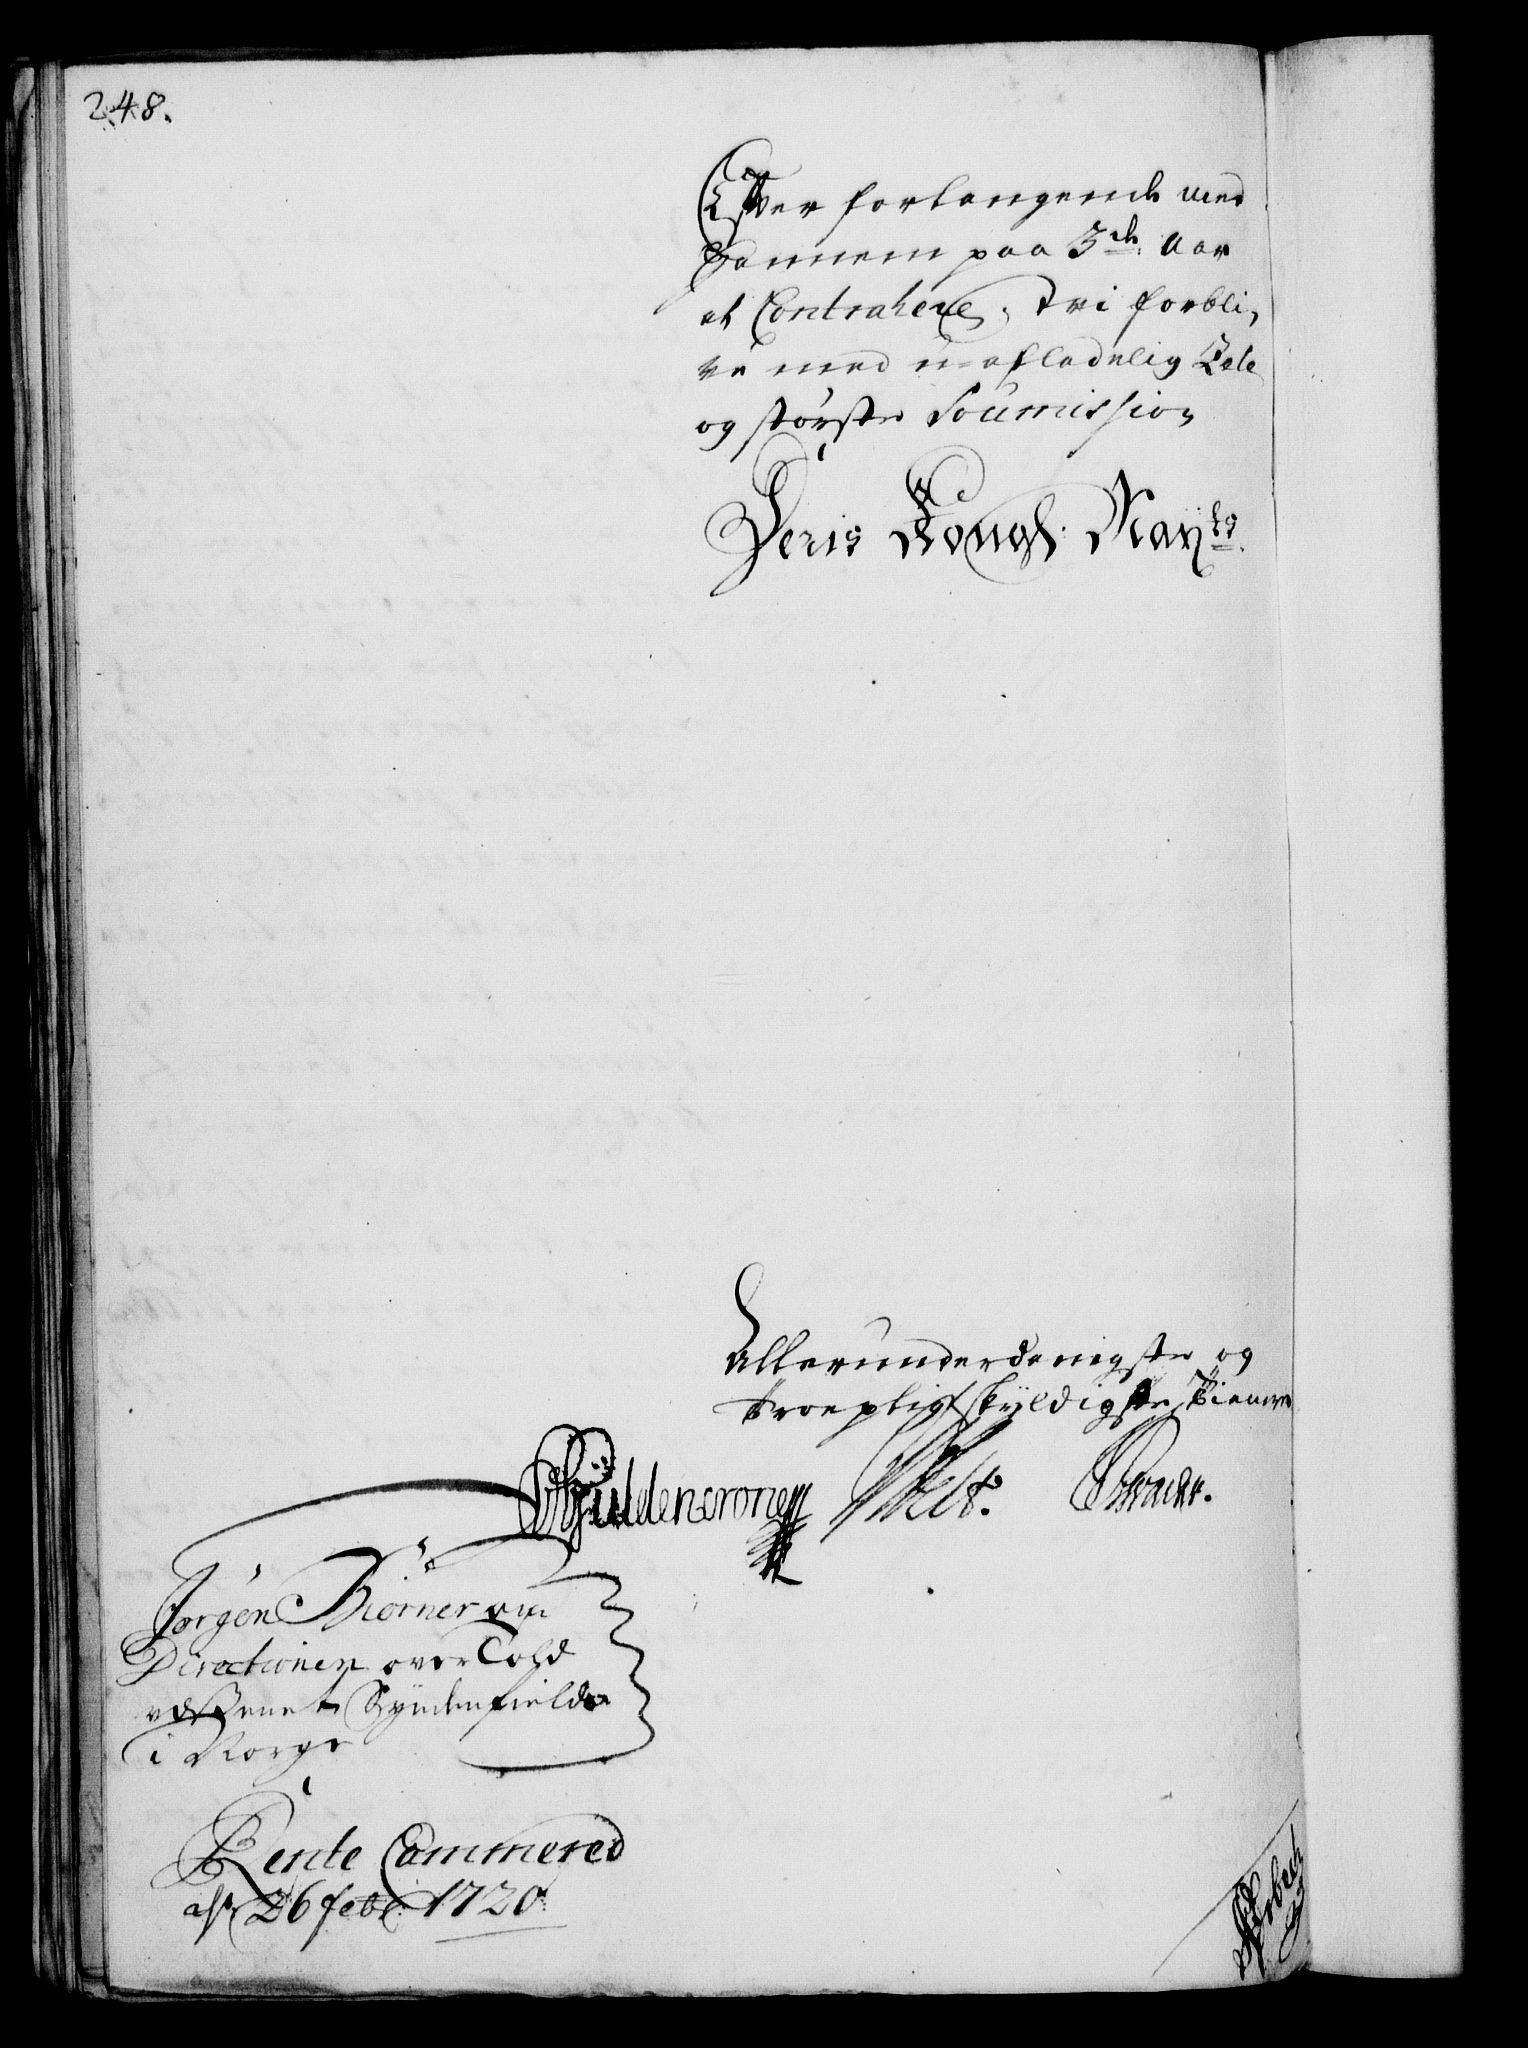 248.
Efter forlangende med
hannem paa 3de. Aar
at Contrahere, Wi forbli,
ve med u-afladelig Zele
og største Soumission
Deris Kongl: Mayts.
Allerunderdanigste og
troepligtskyldigste tienere
Güldencrone
Jørgen Biørner om
Directionen over Told
væsenet Syndenfields
i Norge
Rente Cammered
26 febr: 1720.